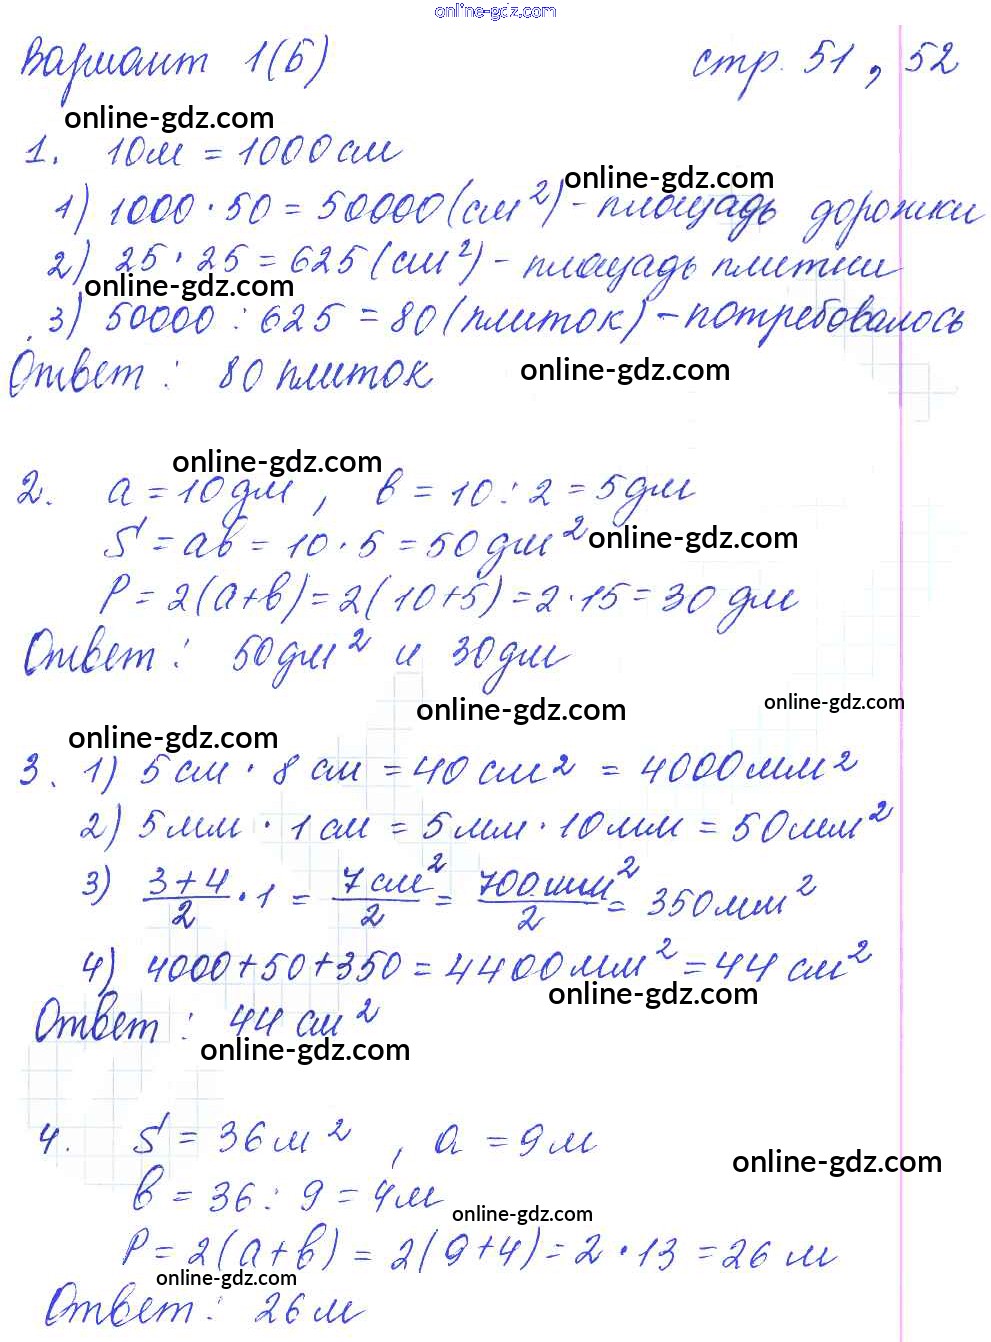 online-gdz.com
Вариант 1(Б) стр. 51, 52
online-gdz.com
1. 10м = 1000 см
online-gdz.com
1) 1000 · 50 = 50000 (см²) - площадь дорожки
2) 25 · 25 = 625 (см²) - площадь плитки
online-gdz.com
3) 50000 : 625 = 80 (плиток) - потребовалось
Ответ: 80 плиток online-gdz.com
online-gdz.com
2. a = 10 дм, b = 10 : 2 = 5 дм
S = ab = 10 · 5 = 50 дм² online-gdz.com
P = 2(a+b) = 2(10+5) = 2·15 = 30 дм
Ответ: 50 дм² и 30 дм
online-gdz.com online-gdz.com
online-gdz.com
3. 1) 5 см · 8 см = 40 см² = 4000 мм²
2) 5 мм · 1 см = 5 мм · 10 мм = 50 мм²
3) (3+4)/2 · 1 = 7 см²/2 = 700 мм²/2 = 350 мм²
4) 4000+50+350 = 4400 мм² = 44 см²
online-gdz.com
Ответ: 44 см²
online-gdz.com
4. S = 36 м², a = 9 м
online-gdz.com
b = 36 : 9 = 4 м
online-gdz.com
P = 2(a+b) = 2(9+4) = 2 · 13 = 26 м
online-gdz.com
Ответ: 26 м